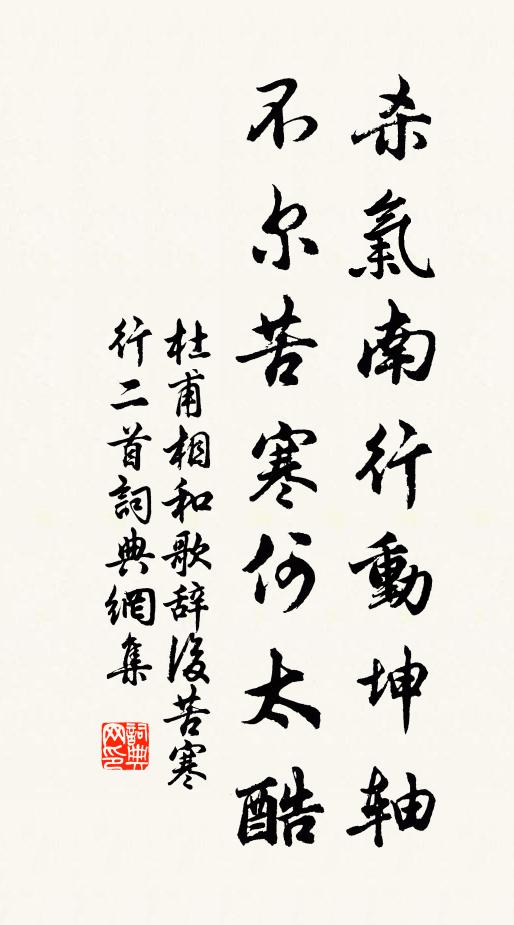 杀氣南行動坤軸
不尔苦寒何太酷
杜甫相和歌辞後苦寒
行二首詞典網集
詞典网印